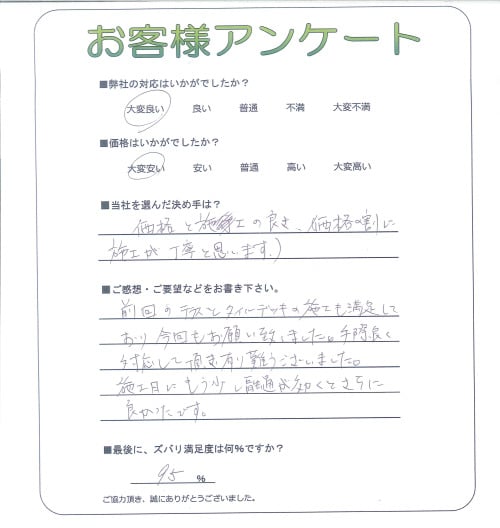 お客様アンケート
■弊社の対応はいかがでしたか？
大変良い 良い 普通 不満 大変不満
■価格はいかがでしたか？
大変安い 安い 普通 高い 大変高い
■当社を選んだ決め手は？
価格と施工の良さ、価格の割に
施工が丁寧と思います。)
■ご感想・ご要望などをお書き下さい。
前回のテラスとタイルデッキの施工も満足して
おり今回もお願い致しました。手際良く
対応して頂き有り難うございました。
施工日にもう少し融通が効くとさらに
良かったです。
■最後に、ズバリ満足度は何％ですか？
95 ％
ご協力頂き、誠にありがとうございました。